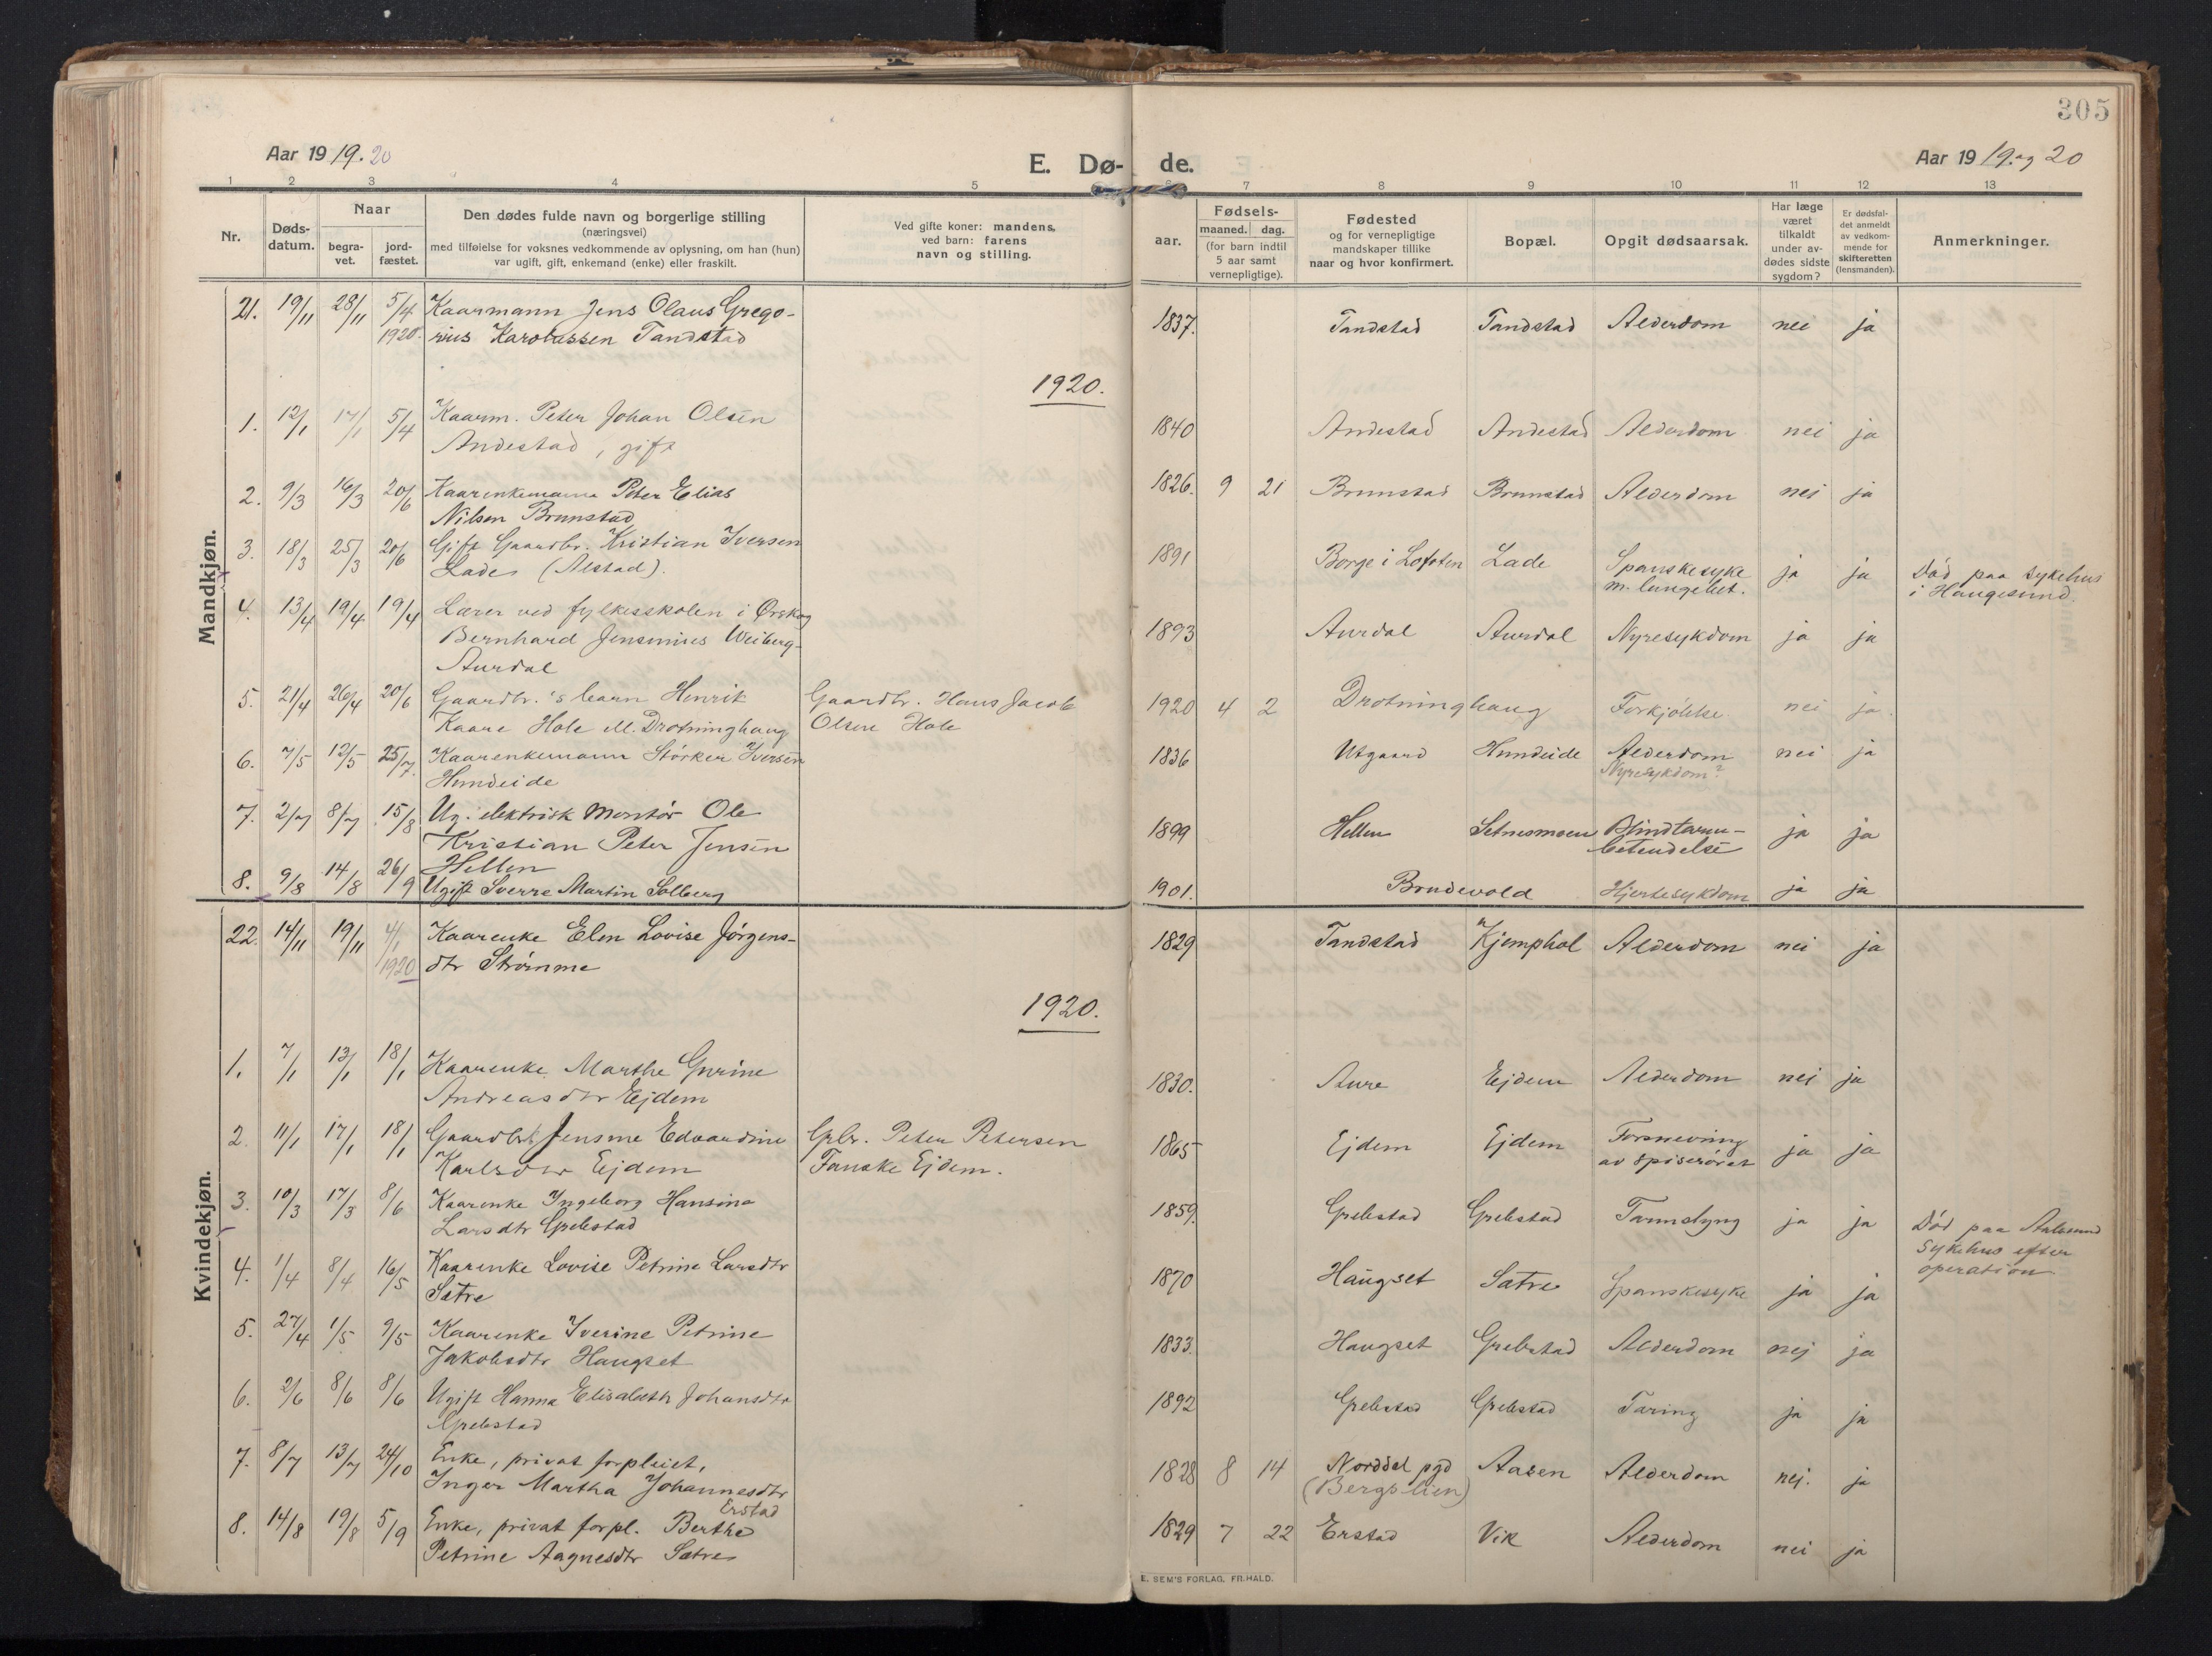 305
Aar 19 19. 20
E. Dø-
de.
Aar 19 19. og 20
1 2 3 4 5 6 7 8 9 10 11 12 13
Nr.
Døds-
datum.
Naar
begra-
vet.
jord-
fæstet.
Den dødes fulde navn og borgerlige stilling
(næringsvei)
med tilføielse for voksnes vedkommende av oplysning, om han (hun)
var ugift, gift, enkemand (enke) eller fraskilt.
Ved gifte koner: mandens,
ved barn: farens
navn og stilling.
Fødsels-
aar.
maaned. dag.
(for barn indtil
5 aar samt
vernepligtige).
Fødested
og for vernepligtige
mandskaper tillike
naar og hvor konfirmert.
Bopæl.
Opgit dødsaarsak.
Har læge
været
tilkaldt
under av-
dødes sidste
sygdom?
Er dødsfal-
det anmeldt
av vedkom-
mende for
skifteretten
(lensmanden).
Anmerkninger.
Mandkjøn.
21. 19/11 28/11 5/4 Kaarmann Jens Olaus Grego- 1837. Tandstad Tandstad Alderdom nei ja
1920. rius Karolussen Tandstad
1920.
1. 12/1 17/1 5/4 Kaarm. Peter Johan Olsen 1840 Andestad Andestad Alderdom nei ja
Andestad, gift
2. 9/3 16/3 20/6 Kaarenkemann Peter Elias 1826. 9 21 Brunstad Brunstad Alderdom nei ja
Nilsen Brunstad
3. 18/3 25/3 20/6 Gift Gaardbr. Kristian Iversen 1891 Borge i Lofoten Lade Spanskesyke ja ja Död paa sykehus
Lade (Alstad). m. lungebet. i Haugesund.
4. 13/4 19/4 19/4 Lærer ved fylkesskolen i Ørskog 1893 Aurdal Aurdal Nyresykdom ja ja
Bernhard Jensenius Weiberg-
Aurdal
5. 21/4 26/4 20/6 Gaardbr.'s barn Henrik Gaardbr. Hans Jacob 1920 4 2 Drotninghaug Forkjölelse nei ja.
Kaare Hole M. Drotninghaug Olsen Hole
6. 7/5 12/5 25/7. Kaarenkemann Störker Iversen 1836 Utgaard Hundeide Alderdom nei ja
Hundeide Nyresykdom?
7. 2/7 8/7 15/8 Ug. elektrisk montör Ole 1899 Hellen Setnesmoen Blindtarm- ja ja
Kristian Peter Jensen betendelse
Hellen
8. 9/8 14/8 26/9 Ugift Sverre Martin Solberg 1901. Brudevold Hjertesykdom ja ja
Kvindekjøn.
22. 14/11 19/11 4/1 Kaarenke Elen Lovise Jörgens- 1829 Tandstad Kjemphol Alderdom nei ja
1920 dtr Strömme
1920.
1. 7/1 13/1 18/1 Kaarenke Marthe Gurine 1830. Aure Ejdem Alderdom nei ja
Andreasdtr Ejdem
2. 11/1 17/1 18/1 Jensine Edvardine Gbr. Peter Petersen 1865 Ejdem Ejdem Forsnevring ja ja
Karlsdtr Ejdem Fauske Ejdem. av spiseröret
3. 10/3 17/3 8/6 Kaarenke Ingeborg Hansine 1859. Grebstad Grebstad Tarmslyng ja ja Död paa Aalesund
Larsdtr Grebstad sykehus efter
operation.
4. 1/4 8/4 16/5 Kaarenke Lovise Petrine Larsdtr 1870 Haugset Satre Spanskesyke ja ja
Satre
5. 27/4 1/5 9/5 Kaarenke Iverine Petrine 1833. Haugset Grebstad Alderdom nej ja
Jakobsdtr Haugset
6. 2/6 8/6 8/6 Ugift Hanna Elisabeth Johansdtr 1892 Grebstad Grebstad Tæring ja ja
Grebstad
7. 8/7 13/7 24/10 Enke, privat forpleiet, 1828 8 14 Norddal pgd Aasen Alderdom nej. ja
Inger Martha Johannesdtr (Bergslien)
Erstad
8. 14/8 19/8 5/9 Enke, privat forpl. Berthe 1829 7 22 Erstad Vik Alderdom nei ja
Petrine Aagnesdtr Satre
E. SEM'S FORLAG, FR.HALD.